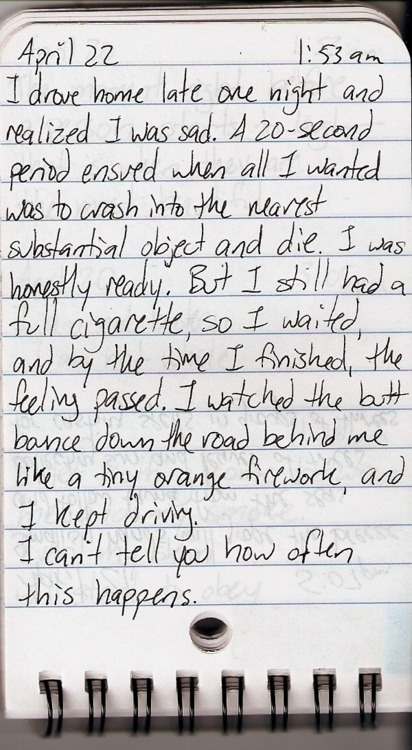 April 22 1:53 am
I drove home late one night and
realized I was sad. A 20-second
period ensued when all I wanted
was to crash into the nearest
substantial object and die. I was
honestly ready. But I still had a
full cigarette, so I waited,
and by the time I finished, the
feeling passed. I watched the butt
bounce down the road behind me
like a tiny orange firework, and
I kept driving.
I can't tell you how often
this happens.